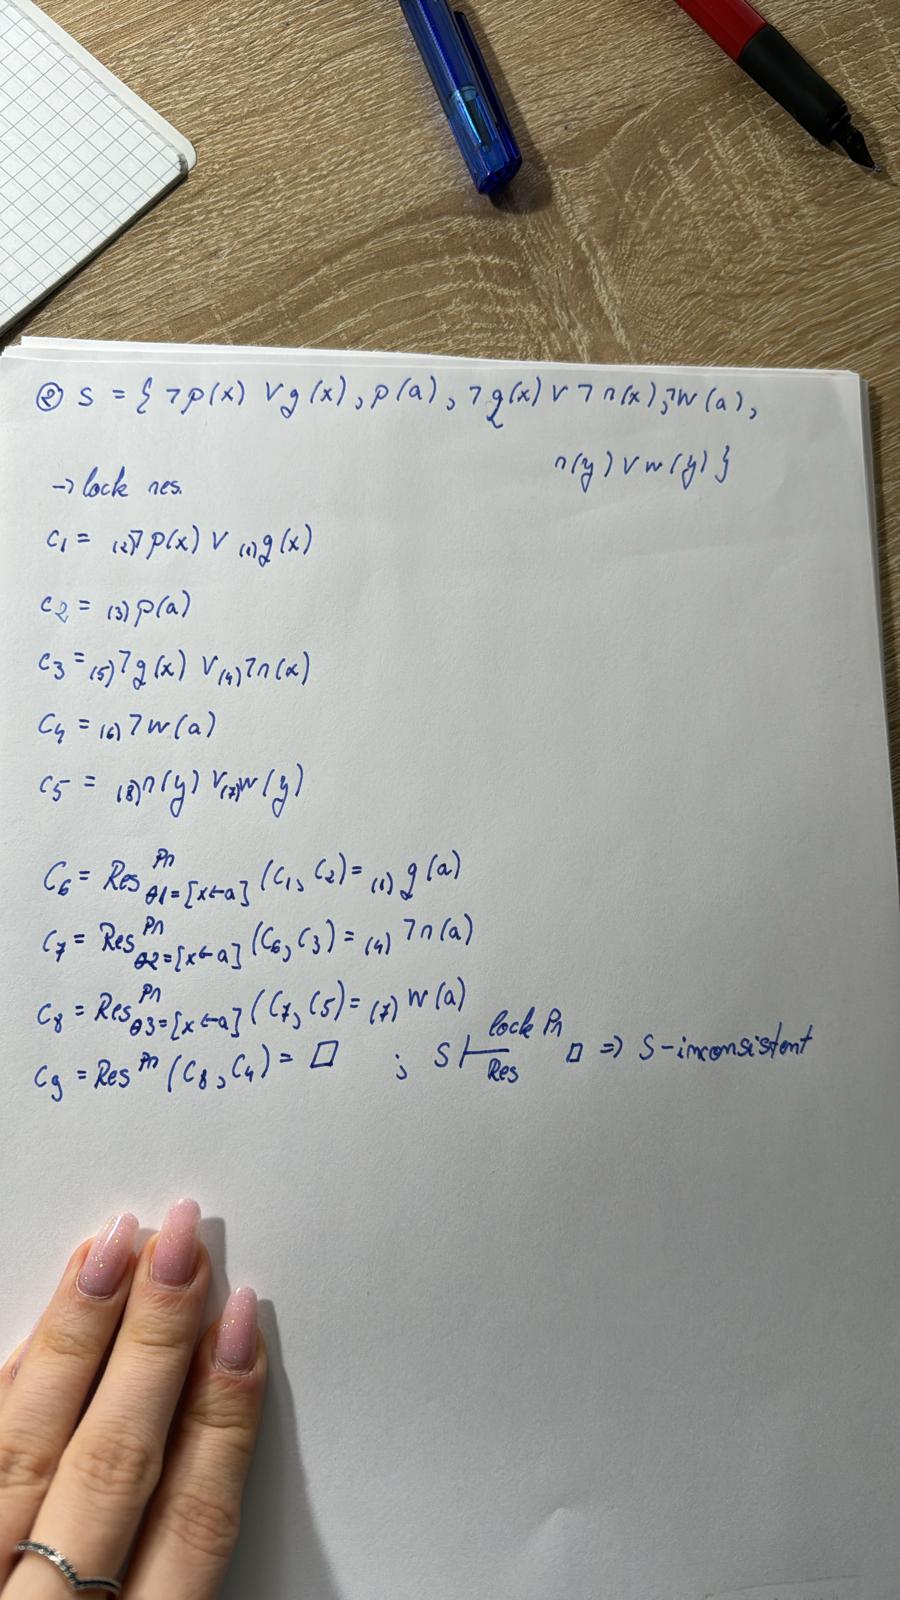 ② S = { ¬p(x) ∨ g(x), p(a), ¬g(x) ∨ ¬r(x), ¬w(a),
r(y) ∨ w(y) }
→ lock res.
C₁ = (2)¬p(x) ∨ (1)g(x)
C₂ = (3)p(a)
C₃ = (5)¬g(x) ∨ (4)¬r(x)
C₄ = (6)¬w(a)
C₅ = (8)r(y) ∨ (7)w(y)
C₆ = Res^Pr_θ1=[x←a] (C₁, C₂) = (1) g(a)
C₇ = Res^Pr_θ2=[x←a] (C₆, C₃) = (4) ¬r(a)
C₈ = Res^Pr_θ3=[x←a] (C₇, C₅) = (7) w(a)
C₉ = Res^Pr (C₈, C₄) = □ ; S ⊢^lock Pr_Res □ ⇒ S-inconsistent